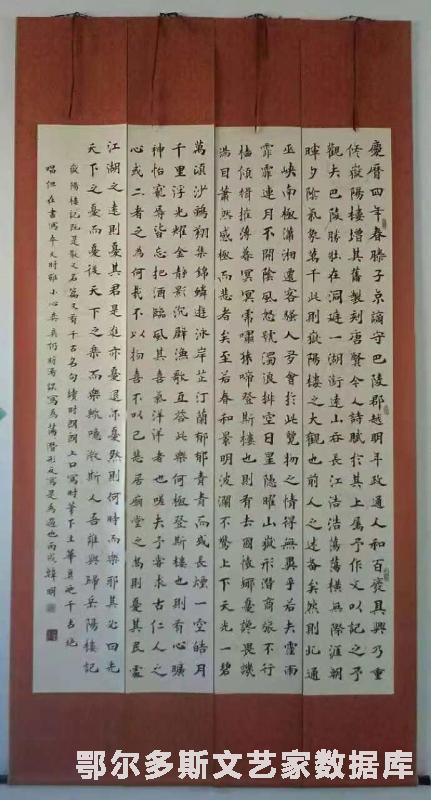 慶曆四年春滕子京謫守巴陵郡越明年政通人和百廢具興乃重
修嶽陽樓增其舊製刻唐賢今人詩賦於其上屬予作文以記之予
觀夫巴陵勝壯在洞庭一湖銜遠山吞長江浩浩蕩蕩橫無際涯朝
暉夕陰氣象萬千此則嶽陽樓之大觀也前人之述備矣然則北通
巫峽南極瀟湘遷客騷人多會於此覽物之情得無異乎若夫霪雨
霏霏連月不開陰風怒號濁浪排空日星隱曜山嶽形潛商旅不行
檣傾楫摧薄暮冥冥虎嘯猿啼登斯樓也則有去國懷鄉憂讒畏譏
滿目蕭然感極而悲者矣至若春和景明波瀾不驚上下天光一碧
萬頃沙鷗翔集錦鱗遊泳岸芷汀蘭郁郁青青而或長煙一空皓月
千里浮光耀金靜影沉璧漁歌互答此樂何極登斯樓也則有心曠
神怡寵辱皆忘把酒臨風其喜氣洋洋者也嗟夫予嘗求古仁人之
心或二者之為何哉不以物喜不以己悲居廟堂之高則憂其民處
江湖之遠則憂其君是進亦憂退亦憂然則何時而樂耶其必曰先
天下之憂而憂後天下之樂而樂歟噫微斯人吾誰與歸岳陽樓記
嶽陽樓記既是散文名篇又有千古名句讀時朗朗上口寫時筆下生華真乃千古絕
唱但在書寫本文時雖小心仍將寫為
鄂尔多斯文艺家数据库